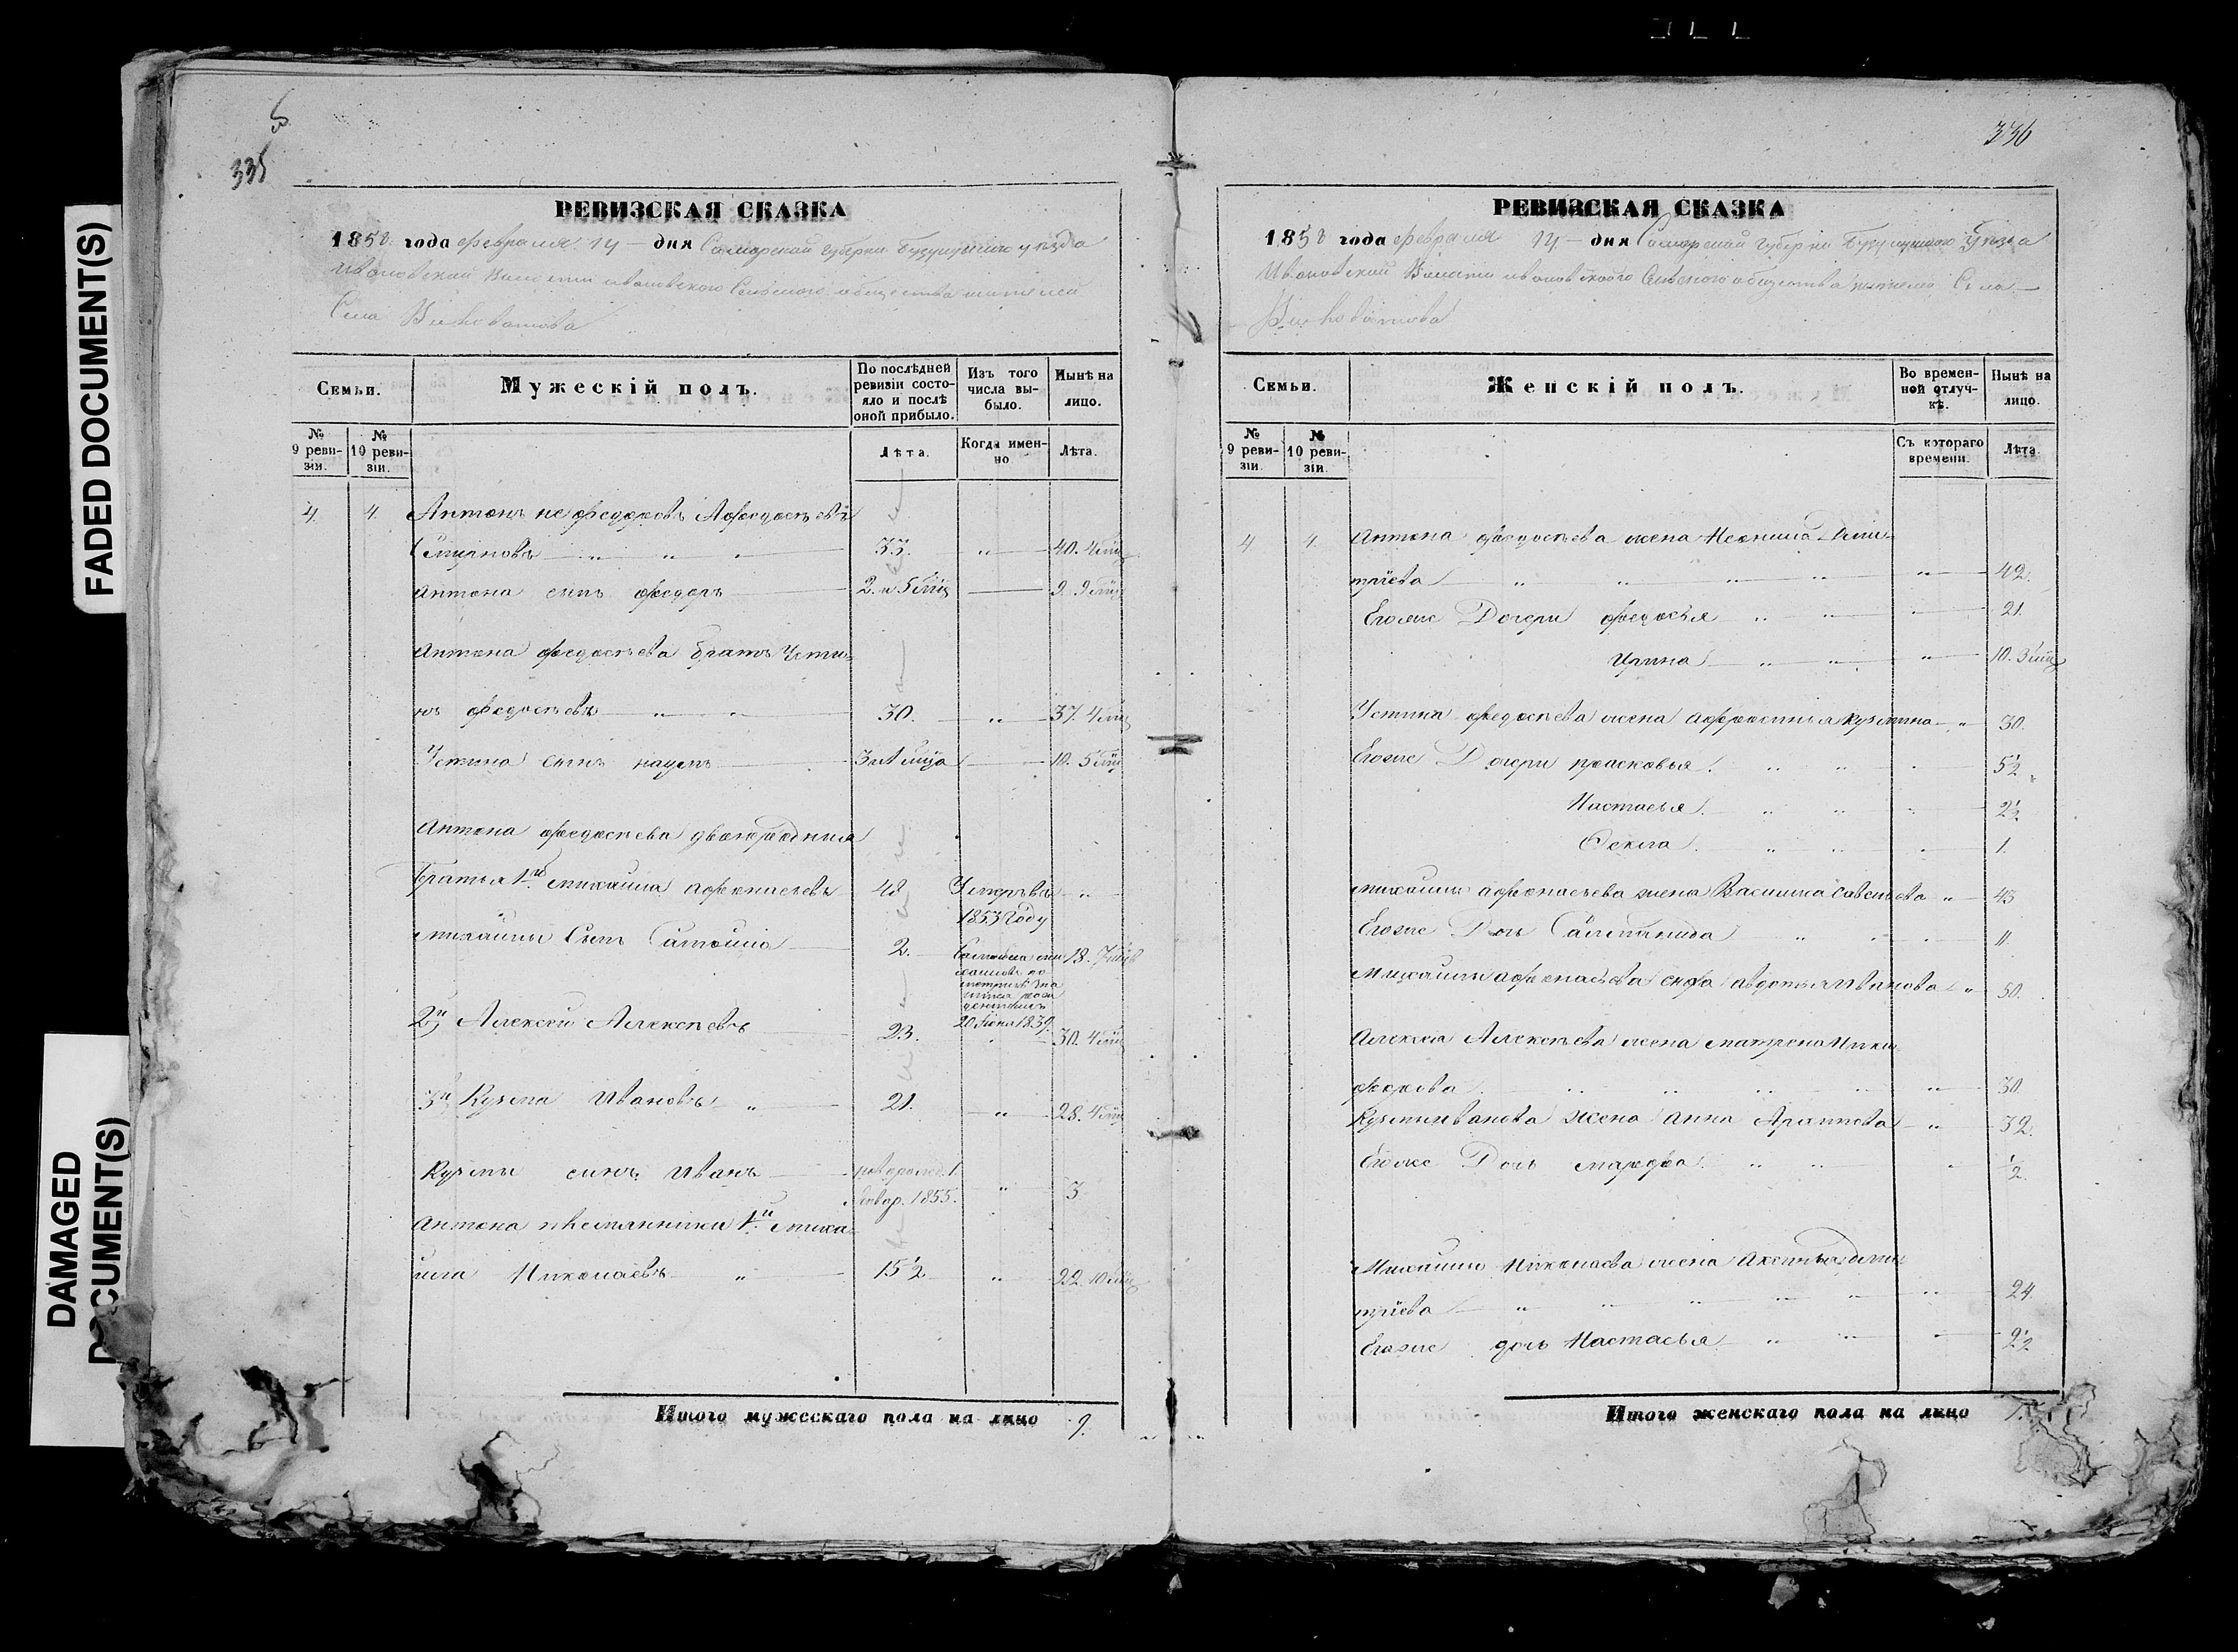 FADED DOCUMENT(S)
DAMAGED DOCUMENT(S)
335
РЕВИЗСКАЯ СКАЗКА
1858 года февраля 14 — дня Самарской губерніи Бузулукского уѣзда
Ивановской Волости ивановского Сельского общества жителей
Села
Мужескій полъ.
Семьи.
По послѣдней ревизіи состояло и послѣ оной прибыло.
Изъ того числа выбыло.
Нынѣ на лицо.
№ 9 ревизіи.
№ 10 ревизіи.
Лѣта.
Когда именно
Лѣта.
4. 4. Антонъ не федоровъ А федосѣевъ
Смирновъ 33. 40. 4 мѣц
Антона сынъ федоръ 2. и 5 мѣц 9. 9 мѣц
Антона федосѣева братъ Усти-
нъ федосѣевъ 30. 37. 4 мѣц
Устина сынъ наумъ 3 10. 5 мѣц
Антона федосѣева двоюродныя
братья 1й михаила афонасьевъ 48 Умеръ въ
1853 году
михаилы Сынъ 2. 18.
20 1839.
2й Алексѣй Алексѣевъ 23. 30. 4 мѣц
3й Кузма Ивановъ 21. 28. 4 мѣц
Кузмы сынъ Иванъ 1
январ. 1855. 3
Антона племянники 1й миха-
ила Николаевъ 15 1/2 22. 10 мѣц
Итого мужескаго пола на лицо 9.
336
РЕВИЗСКАЯ СКАЗКА
1858 года февраля 14 — дня Самарской губерніи Бузулукского уѣзда
Ивановской Волости ивановского Сельского общества жителей Села
Женскій полъ.
Семьи.
Во временной отлучкѣ.
Нынѣ на лицо.
№ 9 ревизіи.
№ 10 ревизіи.
Съ котораго времени.
Лѣта.
4. 4. Антона федосѣева жена Неонила Дми-
тріева 42.
Его же Дочери федосья 21.
Ирина 10. 3 мѣц
Устина федосѣева жена афросинья кузмина 30.
Его же Дочери прасковья 5 1/2
Настасья 2 1/2
Фекла 1.
михаилы афонасьева жена Василиса савельева 45
Его же Дочь 11.
Михаилы афонасьева сноха авдотья Иванова 50.
Алексея Алексѣева жена матрена Ники-
форова 30
Кузмы иванова жена анна Архипова 32.
Его же Дочь марфа 1/2
Михаилы Николаева жена Аксинья дми-
тріева 24
Его же дочь Настасья 2 1/2
Итого женскаго пола на лицо